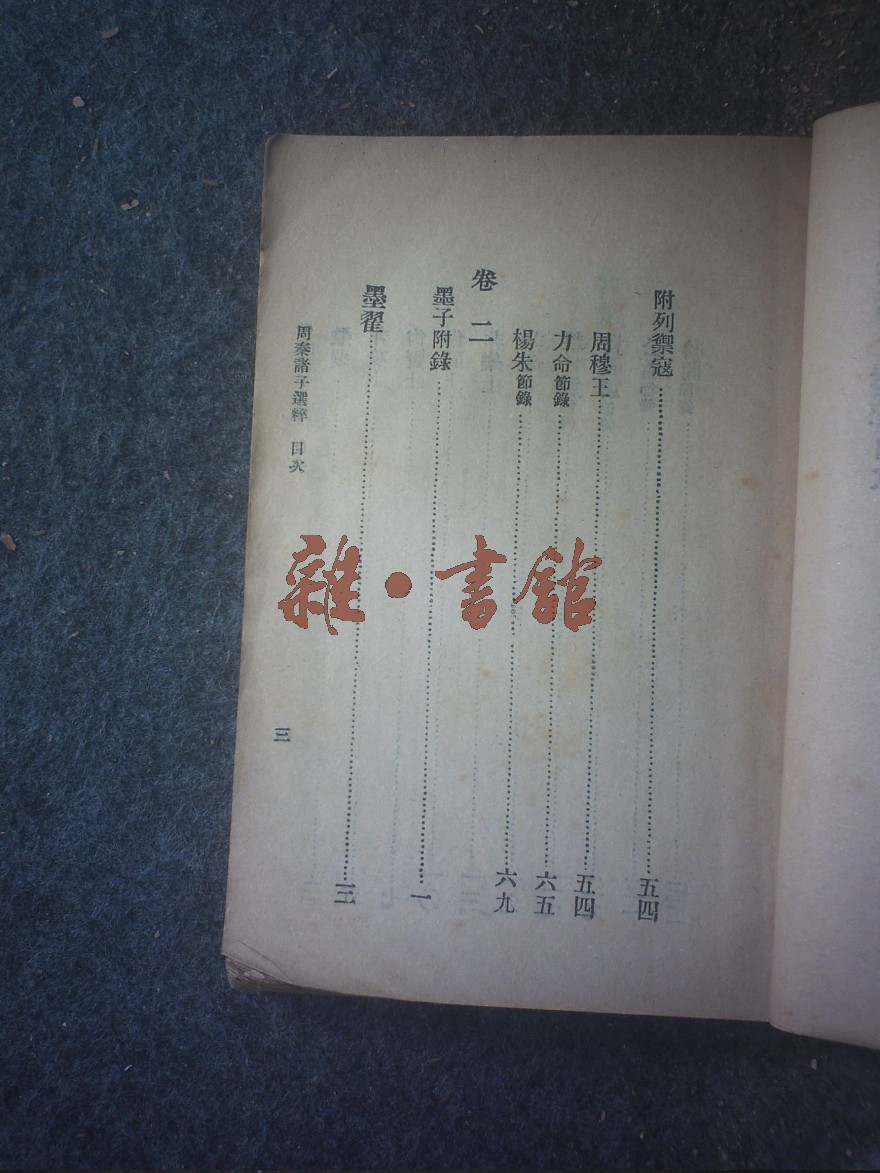 附列禦寇………五四
周穆王………五四
力命節錄………六五
楊朱節錄………六九
卷二
墨子附錄………一
墨翟………三
周秦諸子選粹 目次
三
雜·書館